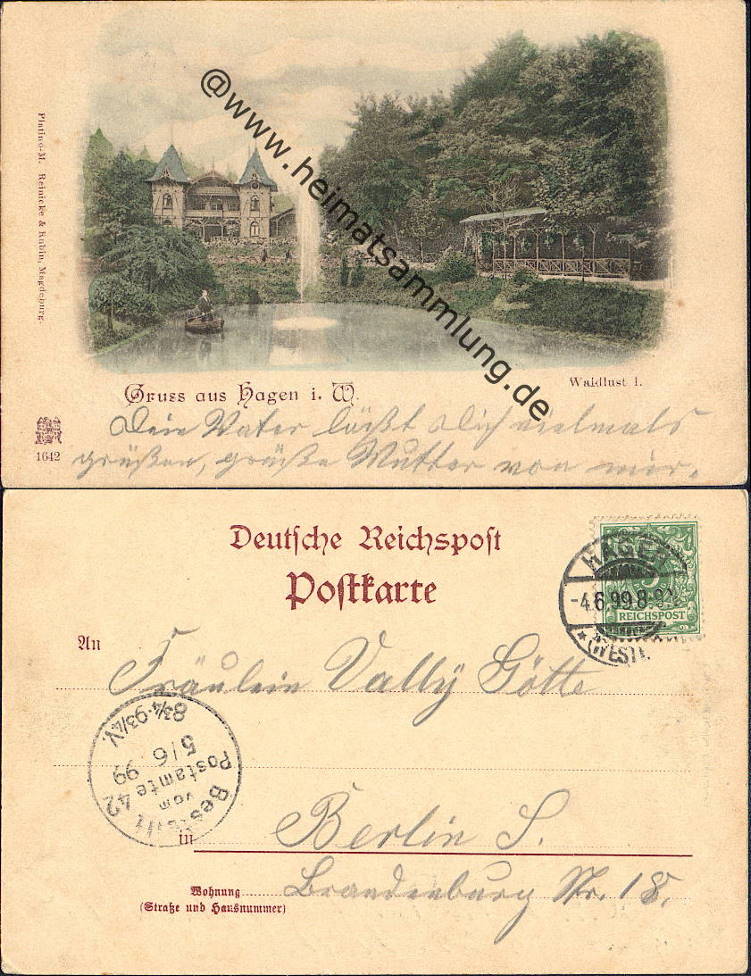 @www.heimatsammlung.de
Platino-M. Reinicke & Rubin, Magdeburg.
Waldlust I.
Gruss aus Hagen i. W.
1642
Dein Vater läßt Dich vielmals
grüßen, grüße Mutter von mir.
Deutsche Reichspost
Postkarte
HAGEN
-4.6.99.8-9
(WESTF.)
5
REICHSPOST
An
Fräulein Vally Götte
Bestellt
vom
Postamte 42
5/6 99
8¾-9¾V.
in Berlin S.
Wohnung Brandenburg Str. 18.
(Straße und Hausnummer)